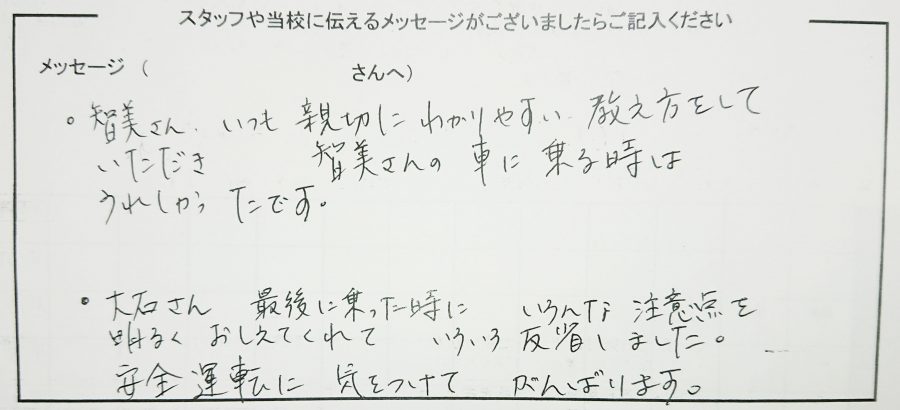 スタッフや当校に伝えるメッセージがございましたらご記入ください
メッセージ（ さんへ）
・智美さん、いつも 親切に わかりやすい 教え方をして
いただき 智美さんの 車に 乗る時は
うれしかったです。
・大石さん 最後に乗った時に いろんな 注意点を
明るく おしえてくれて いろいろ 反省しました。
安全運転に 気をつけて がんばります。